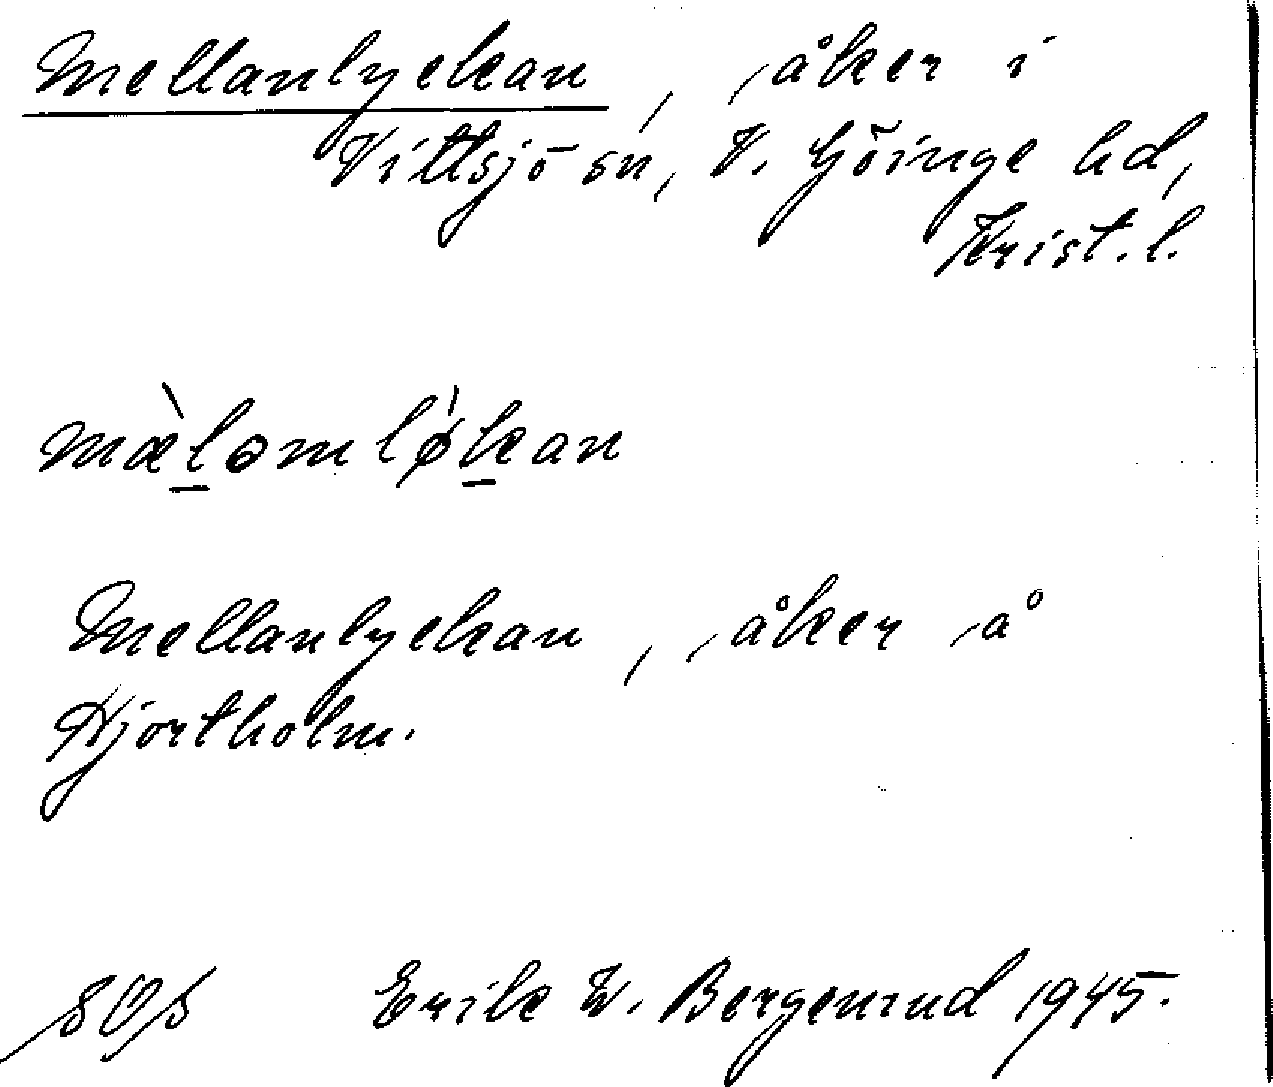 Mellanlyckan, åker i
Vittsjö sn, V. Göinge hd,
Krist. l.
mæ̀ləmlǿkan
Mellanlyckan, åker å
Hjortholm.
Erik W. Bergenrud 1945.